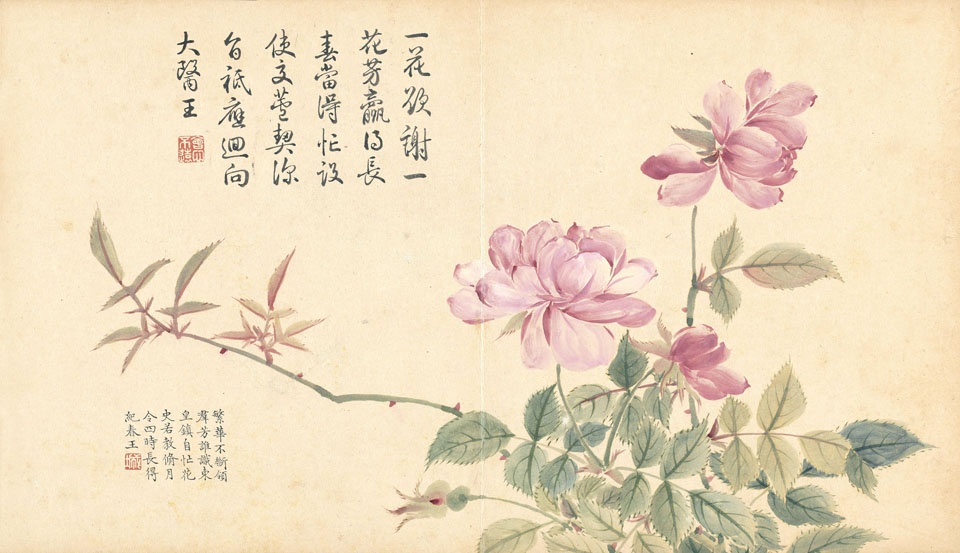 一花欲謝一
花芳贏得長
春當得忙設
使文葦契深
旨祇應迴向
大醫王
繁華不斷領
羣芳誰識東
皇鎮自忙花
史若教脩月
令四時長得
紀春王